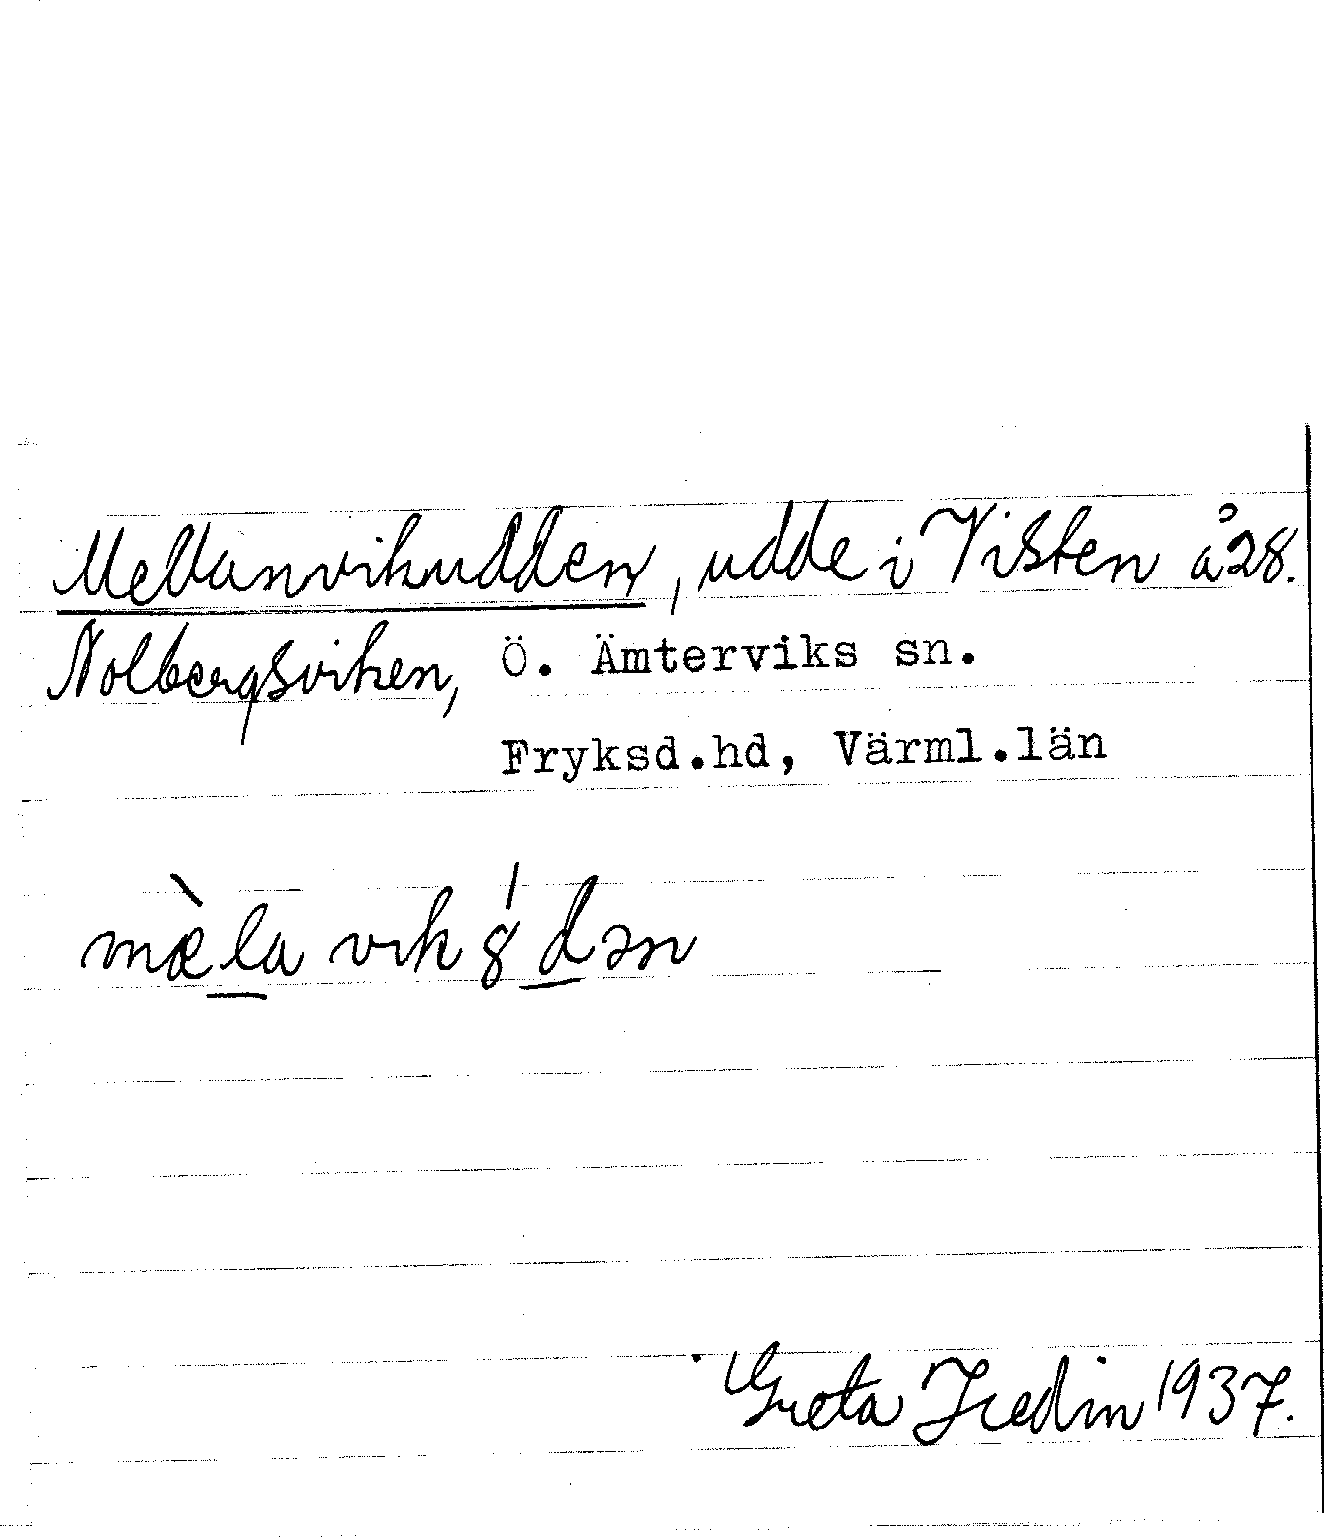 Mellanvikudden, udde i Visten å 28.
Nolbergsviken, Ö. Ämterviks sn.
Fryksd.hd, Värml.län
mæ̀la vik 8́dən
Greta Fredin 1937.